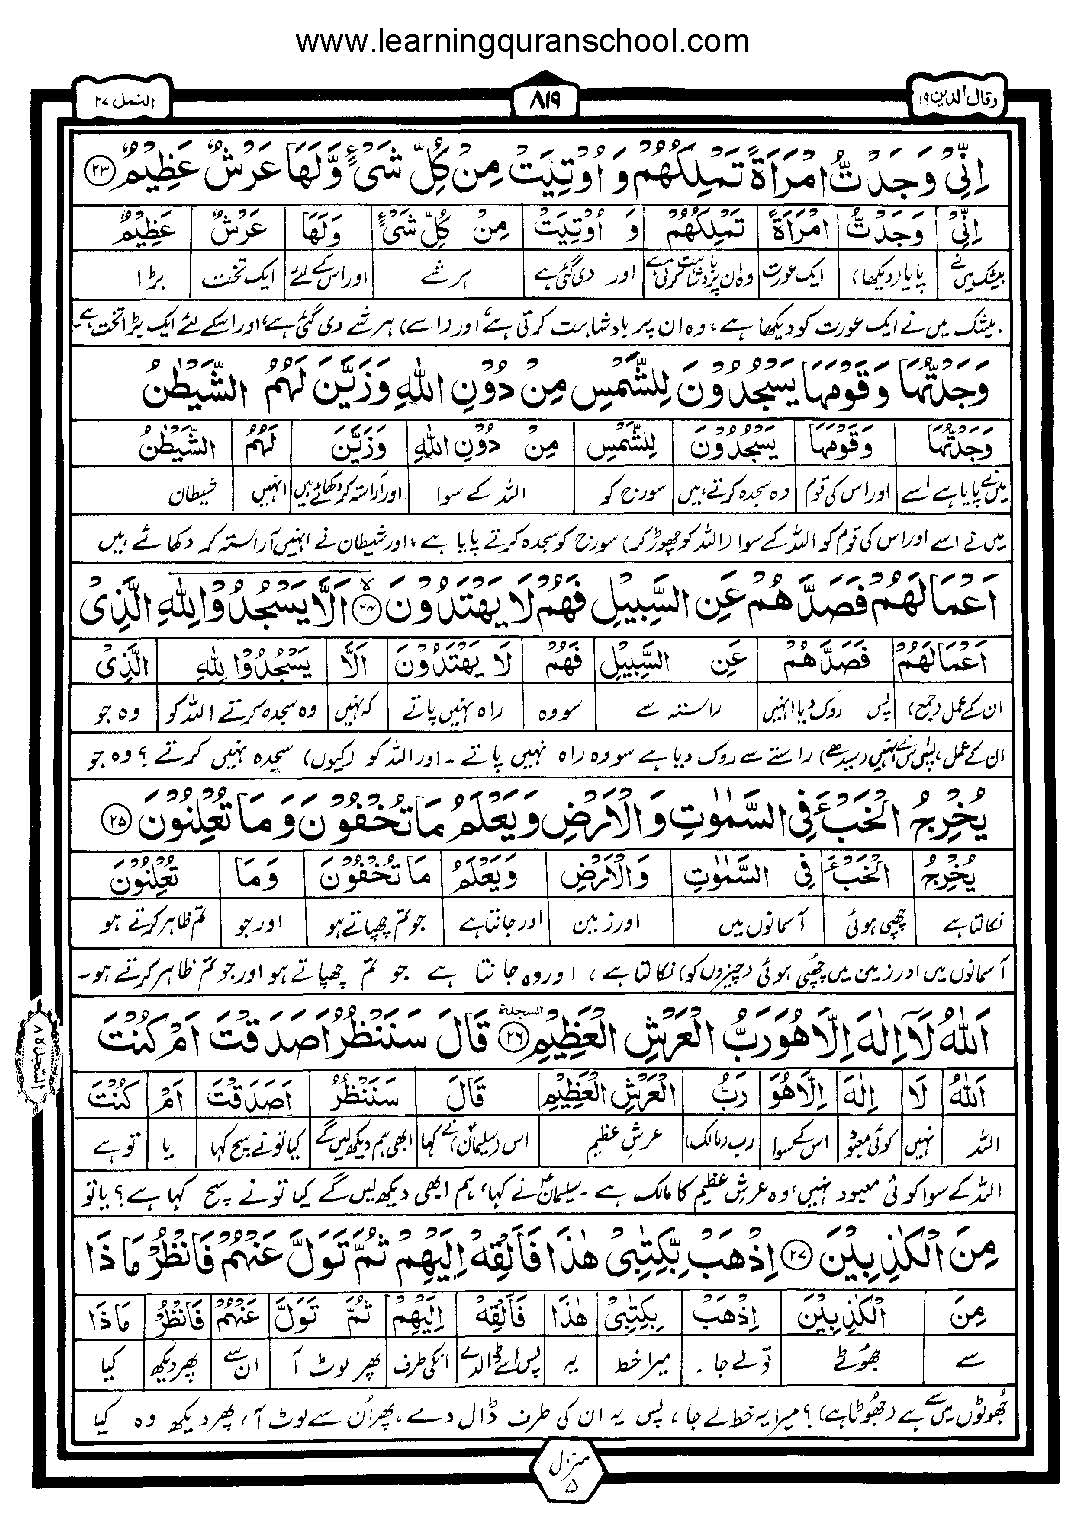 www.learningquranschool.com
وقال الذین ۱۹
۸۱۹
النمل ۲۷
اِنِّیْ وَجَدْتُّ امْرَاَةً تَمْلِكُهُمْ وَ اُوْتِیَتْ مِنْ كُلِّ شَیْءٍ وَّلَهَا عَرْشٌ عَظِیْمٌ ۲۳
اِنِّیْ وَجَدْتُّ امْرَاَةً تَمْلِكُهُمْ وَ اُوْتِیَتْ مِنْ كُلِّ شَیْءٍ وَلَهَا عَرْشٌ عَظِیْمٌ
بیشک میں نے پایا (دیکھا) ایک عورت وہ ان پر بادشاہت کرتی ہے اور دی گئی ہے ہر شے اور اس کے لئے ایک تخت بڑا
بیشک میں نے ایک عورت کو دیکھا ہے، وہ ان پر بادشاہت کرتی ہے اور (اسے) ہر شے دی گئی ہے، اور اسکے لئے ایک بڑا تخت ہے
وَجَدْتُّهَا وَقَوْمَهَا یَسْجُدُوْنَ لِلشَّمْسِ مِنْ دُوْنِ اللهِ وَزَیَّنَ لَهُمُ الشَّیْطٰنُ
وَجَدْتُّهَا وَقَوْمَهَا یَسْجُدُوْنَ لِلشَّمْسِ مِنْ دُوْنِ اللهِ وَزَیَّنَ لَهُمُ الشَّیْطٰنُ
میں نے پایا ہے اسے اور اس کی قوم وہ سجدہ کرتے ہیں سورج کو اللہ کے سوا اور آراستہ کر دکھائے ہیں انہیں شیطان
میں نے اسے اور اس کی قوم کو اللہ کے سوا (اللہ کو چھوڑ کر) سورج کو سجدہ کرتے پایا ہے، اور شیطان نے انہیں آراستہ کر دکھائے ہیں
اَعْمَالَهُمْ فَصَدَّهُمْ عَنِ السَّبِیْلِ فَهُمْ لَا یَهْتَدُوْنَ ۲۴ اَلَّا یَسْجُدُوْا لِلّٰهِ الَّذِیْ
اَعْمَالَهُمْ فَصَدَّهُمْ عَنِ السَّبِیْلِ فَهُمْ لَا یَهْتَدُوْنَ اَلَّا یَسْجُدُوْا لِلّٰهِ الَّذِیْ
ان کے عمل (جمع) پس روک دیا انہیں راستہ سے سو وہ راہ نہیں پاتے کہ نہیں وہ سجدہ کرتے اللہ کو وہ جو
ان کے عمل، پس انہیں (سیدھے) راستے سے روک دیا ہے سو وہ راہ نہیں پاتے۔ اور اللہ کو (کیوں) سجدہ نہیں کرتے؟ وہ جو
یُخْرِجُ الْخَبْءَ فِی السَّمٰوٰتِ وَالْاَرْضِ وَیَعْلَمُ مَا تُخْفُوْنَ وَمَا تُعْلِنُوْنَ ۲۵
یُخْرِجُ الْخَبْءَ فِی السَّمٰوٰتِ وَالْاَرْضِ وَیَعْلَمُ مَا تُخْفُوْنَ وَمَا تُعْلِنُوْنَ
نکالتا ہے چھپی ہوئی آسمانوں میں اور زمین اور جانتا ہے جو تم چھپاتے ہو اور جو تم ظاہر کرتے ہو
آسمانوں میں اور زمین میں چھپی ہوئی (چیزوں کو) نکالتا ہے، اور وہ جانتا ہے جو تم چھپاتے ہو اور جو تم ظاہر کرتے ہو۔
اَللهُ لَاۤ اِلٰهَ اِلَّا هُوَ رَبُّ الْعَرْشِ الْعَظِیْمِ ۲۶ السجدة قَالَ سَنَنْظُرُ اَصَدَقْتَ اَمْ كُنْتَ
اَللهُ لَا اِلٰهَ اِلَّا هُوَ رَبُّ الْعَرْشِ الْعَظِیْمِ قَالَ سَنَنْظُرُ اَصَدَقْتَ اَمْ كُنْتَ
اللہ نہیں کوئی معبود اس کے سوا رب (مالک) عرش عظیم اس (سلیمان) نے کہا ابھی ہم دیکھ لیں گے کیا تو نے سچ کہا یا تو ہے
اللہ کے سوا کوئی معبود نہیں، وہ عرش عظیم کا مالک ہے۔ سلیمان نے کہا، ہم ابھی دیکھ لیں گے کیا تو نے سچ کہا ہے؟ یا تو
السجدة ۸
مِنَ الْكٰذِبِیْنَ ۲۷ اِذْهَبْ بِّكِتٰبِیْ هٰذَا فَاَلْقِهْ اِلَیْهِمْ ثُمَّ تَوَلَّ عَنْهُمْ فَانْظُرْ مَاذَا
مِنَ الْكٰذِبِیْنَ اِذْهَبْ بِكِتٰبِیْ هٰذَا فَاَلْقِهْ اِلَیْهِمْ ثُمَّ تَوَلَّ عَنْهُمْ فَانْظُرْ مَاذَا
سے جھوٹے تو لے جا۔ میرا خط یہ پس اسے ڈالدے انکی طرف پھر لوٹ آ ان سے پھر دیکھ کیا
جھوٹوں میں سے ہے (جھوٹا ہے)؟ میرا یہ خط لے جا، پس یہ ان کی طرف ڈال دے، پھر ان سے لوٹ آ، پھر دیکھ وہ کیا
منزل ۵